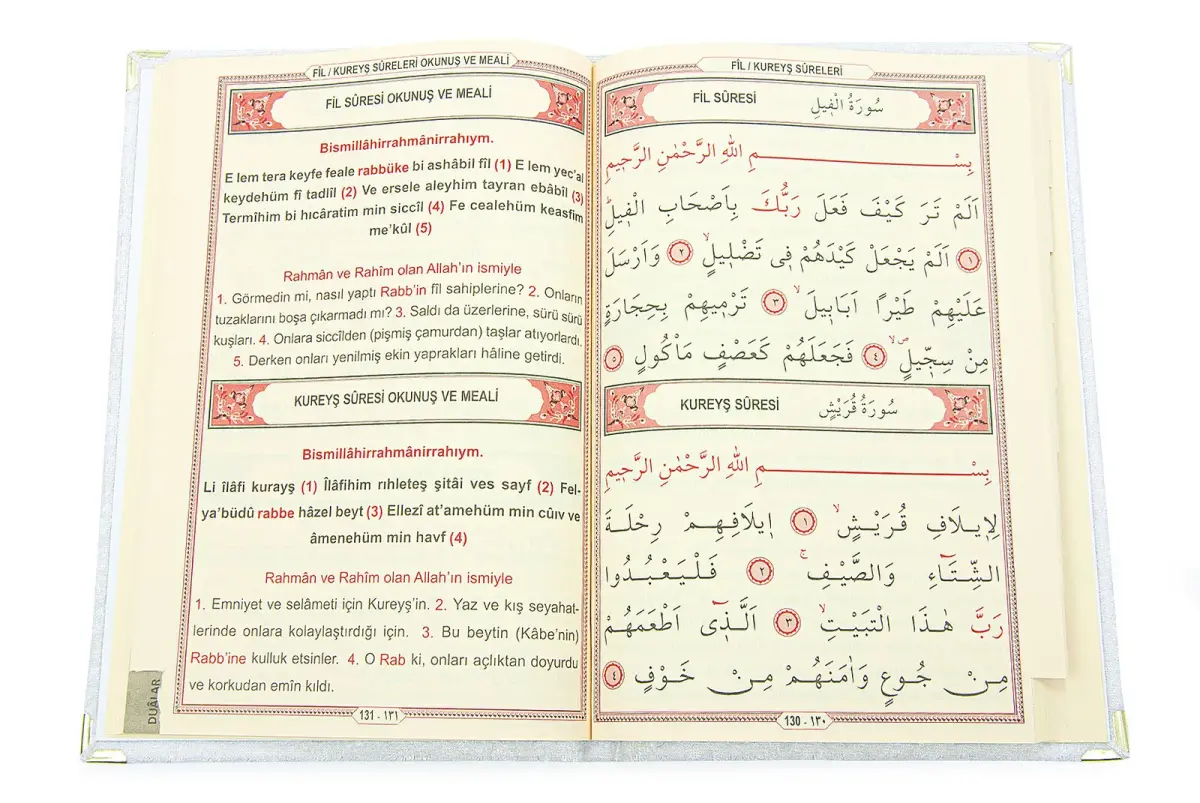 FİL / KUREYŞ SÛRELERİ OKUNUŞ VE MEALİ
FİL SÛRESİ OKUNUŞ VE MEALİ
Bismillâhirrahmânirrahıym.
E lem tera keyfe feale rabbüke bi ashâbil fîl (1) E lem yec’al
keydehüm fî tadlîl (2) Ve ersele aleyhim tayran ebâbîl (3)
Termîhim bi hıcâratim min siccîl (4) Fe cealehüm keasfim
me’kûl (5)
Rahmân ve Rahîm olan Allah’ın ismiyle
1. Görmedin mi, nasıl yaptı Rabb’in fîl sahiplerine? 2. Onların
tuzaklarını boşa çıkarmadı mı? 3. Saldı da üzerlerine, sürü sürü
kuşları. 4. Onlara siccîlden (pişmiş çamurdan) taşlar atıyorlardı.
5. Derken onları yenilmiş ekin yaprakları hâline getirdi.
KUREYŞ SÛRESİ OKUNUŞ VE MEALİ
Bismillâhirrahmânirrahıym.
Li îlâfi kurayş (1) Îlâfihim rıhleteş şitâi ves sayf (2) Fel-
ya’büdû rabbe hâzel beyt (3) Ellezî at’amehüm min cûıv ve
âmenehüm min havf (4)
Rahmân ve Rahîm olan Allah’ın ismiyle
1. Emniyet ve selâmeti için Kureyş’in. 2. Yaz ve kış seyahat-
lerinde onlara kolaylaştırdığı için. 3. Bu beytin (Kâbe’nin)
Rabb’ine kulluk etsinler. 4. O Rab ki, onları açlıktan doyurdu
ve korkudan emîn kıldı.
DUÂLAR
131 - ١٣١
FİL / KUREYŞ SÛRELERİ
FİL SÛRESİ سُورَةُ الْف۪يلِ
بِسْمِ اللهِ الرَّحْمٰنِ الرَّح۪يمِ
اَلَمْ تَرَ كَيْفَ فَعَلَ رَبُّكَ بِاَصْحَابِ الْف۪يلِۜ
﴿١﴾ اَلَمْ يَجْعَلْ كَيْدَهُمْ ف۪ي تَضْل۪يلٍۙ ﴿٢﴾ وَاَرْسَلَ
عَلَيْهِمْ طَيْرًا اَبَاب۪يلَۙ ﴿٣﴾ تَرْم۪يهِمْ بِحِجَارَةٍ
مِنْ سِجّ۪يلٍۙۖ ﴿٤﴾ فَجَعَلَهُمْ كَعَصْفٍ مَأْكُولٍ ﴿٥﴾
KUREYŞ SÛRESİ سُورَةُ قُرَيْشٍ
بِسْمِ اللهِ الرَّحْمٰنِ الرَّح۪يمِ
لِا۪يلَافِ قُرَيْشٍۙ ﴿١﴾ ا۪يلَافِهِمْ رِحْلَةَ
الشِّتَٓاءِ وَالصَّيْفِۚ ﴿٢﴾ فَلْيَعْبُدُوا
رَبَّ هٰذَا الْبَيْتِۙ ﴿٣﴾ اَلَّذ۪ٓي اَطْعَمَهُمْ
مِنْ جُوعٍ وَاٰمَنَهُمْ مِنْ خَوْفٍ ﴿٤﴾
130 - ١٣٠